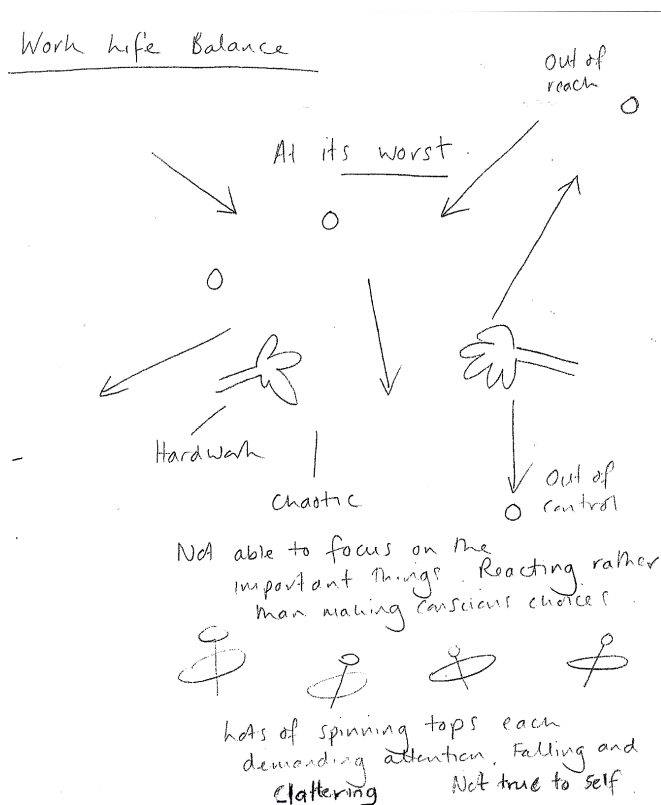 Work Life Balance
Out of
reach
At its worst.
Hardwork
Chaotic
Out of
control
Not able to focus on the
important things. Reacting rather
than making conscious choices.
Lots of spinning tops each
demanding attention. Falling and
Clattering Not true to self.